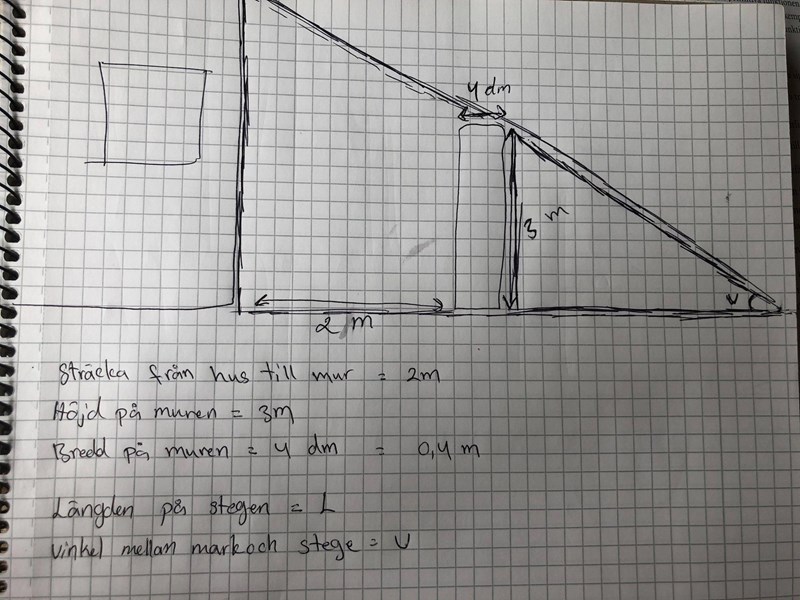 4 dm
3 m
v
2 m
Sträcka från hus till mur = 2m
Höjd på muren = 3m
Bredd på muren = 4 dm = 0,4 m
Längden på stegen = L
Vinkel mellan mark och stege = v